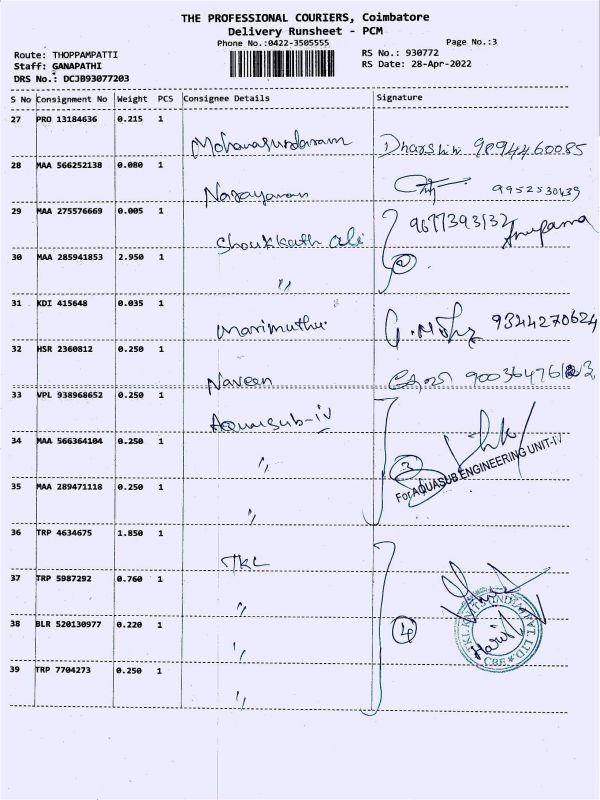 THE PROFESSIONAL COURIERS, Coimbatore
Delivery Runsheet - PCM
Phone No.:0422-3505555 Page No.:3
Route: THOPPAMPATTI RS No.: 930772
Staff: GANAPATHI RS Date: 28-Apr-2022
DRS No.: DCJB93077203
S No Consignment No Weight PCS Consignee Details Signature
27 PRO 13184636 0.215 1
Mohanasundaram Dharshini 9094460085
28 MAA 566252138 0.080 1
Narayanan 9952530439
29 MAA 275576669 0.005 1
Shoukkath Ali 9677393132 Anupama
30 MAA 285941853 2.950 1
" 2
31 KDI 415648 0.035 1
Marimuthu 9344270624
32 HSR 2360812 0.250 1
Naveen
33 VPL 938968652 0.250 1
Aquasub-IV
34 MAA 566364104 0.250 1
" 3
For AQUASUB ENGINEERING UNIT-IV
35 MAA 289471118 0.250 1
"
36 TRP 4634675 1.850 1
TKL
37 TRP 5987292 0.760 1
"
38 BLR 520130977 0.220 1
" 4
CBE
39 TRP 7704273 0.250 1
"